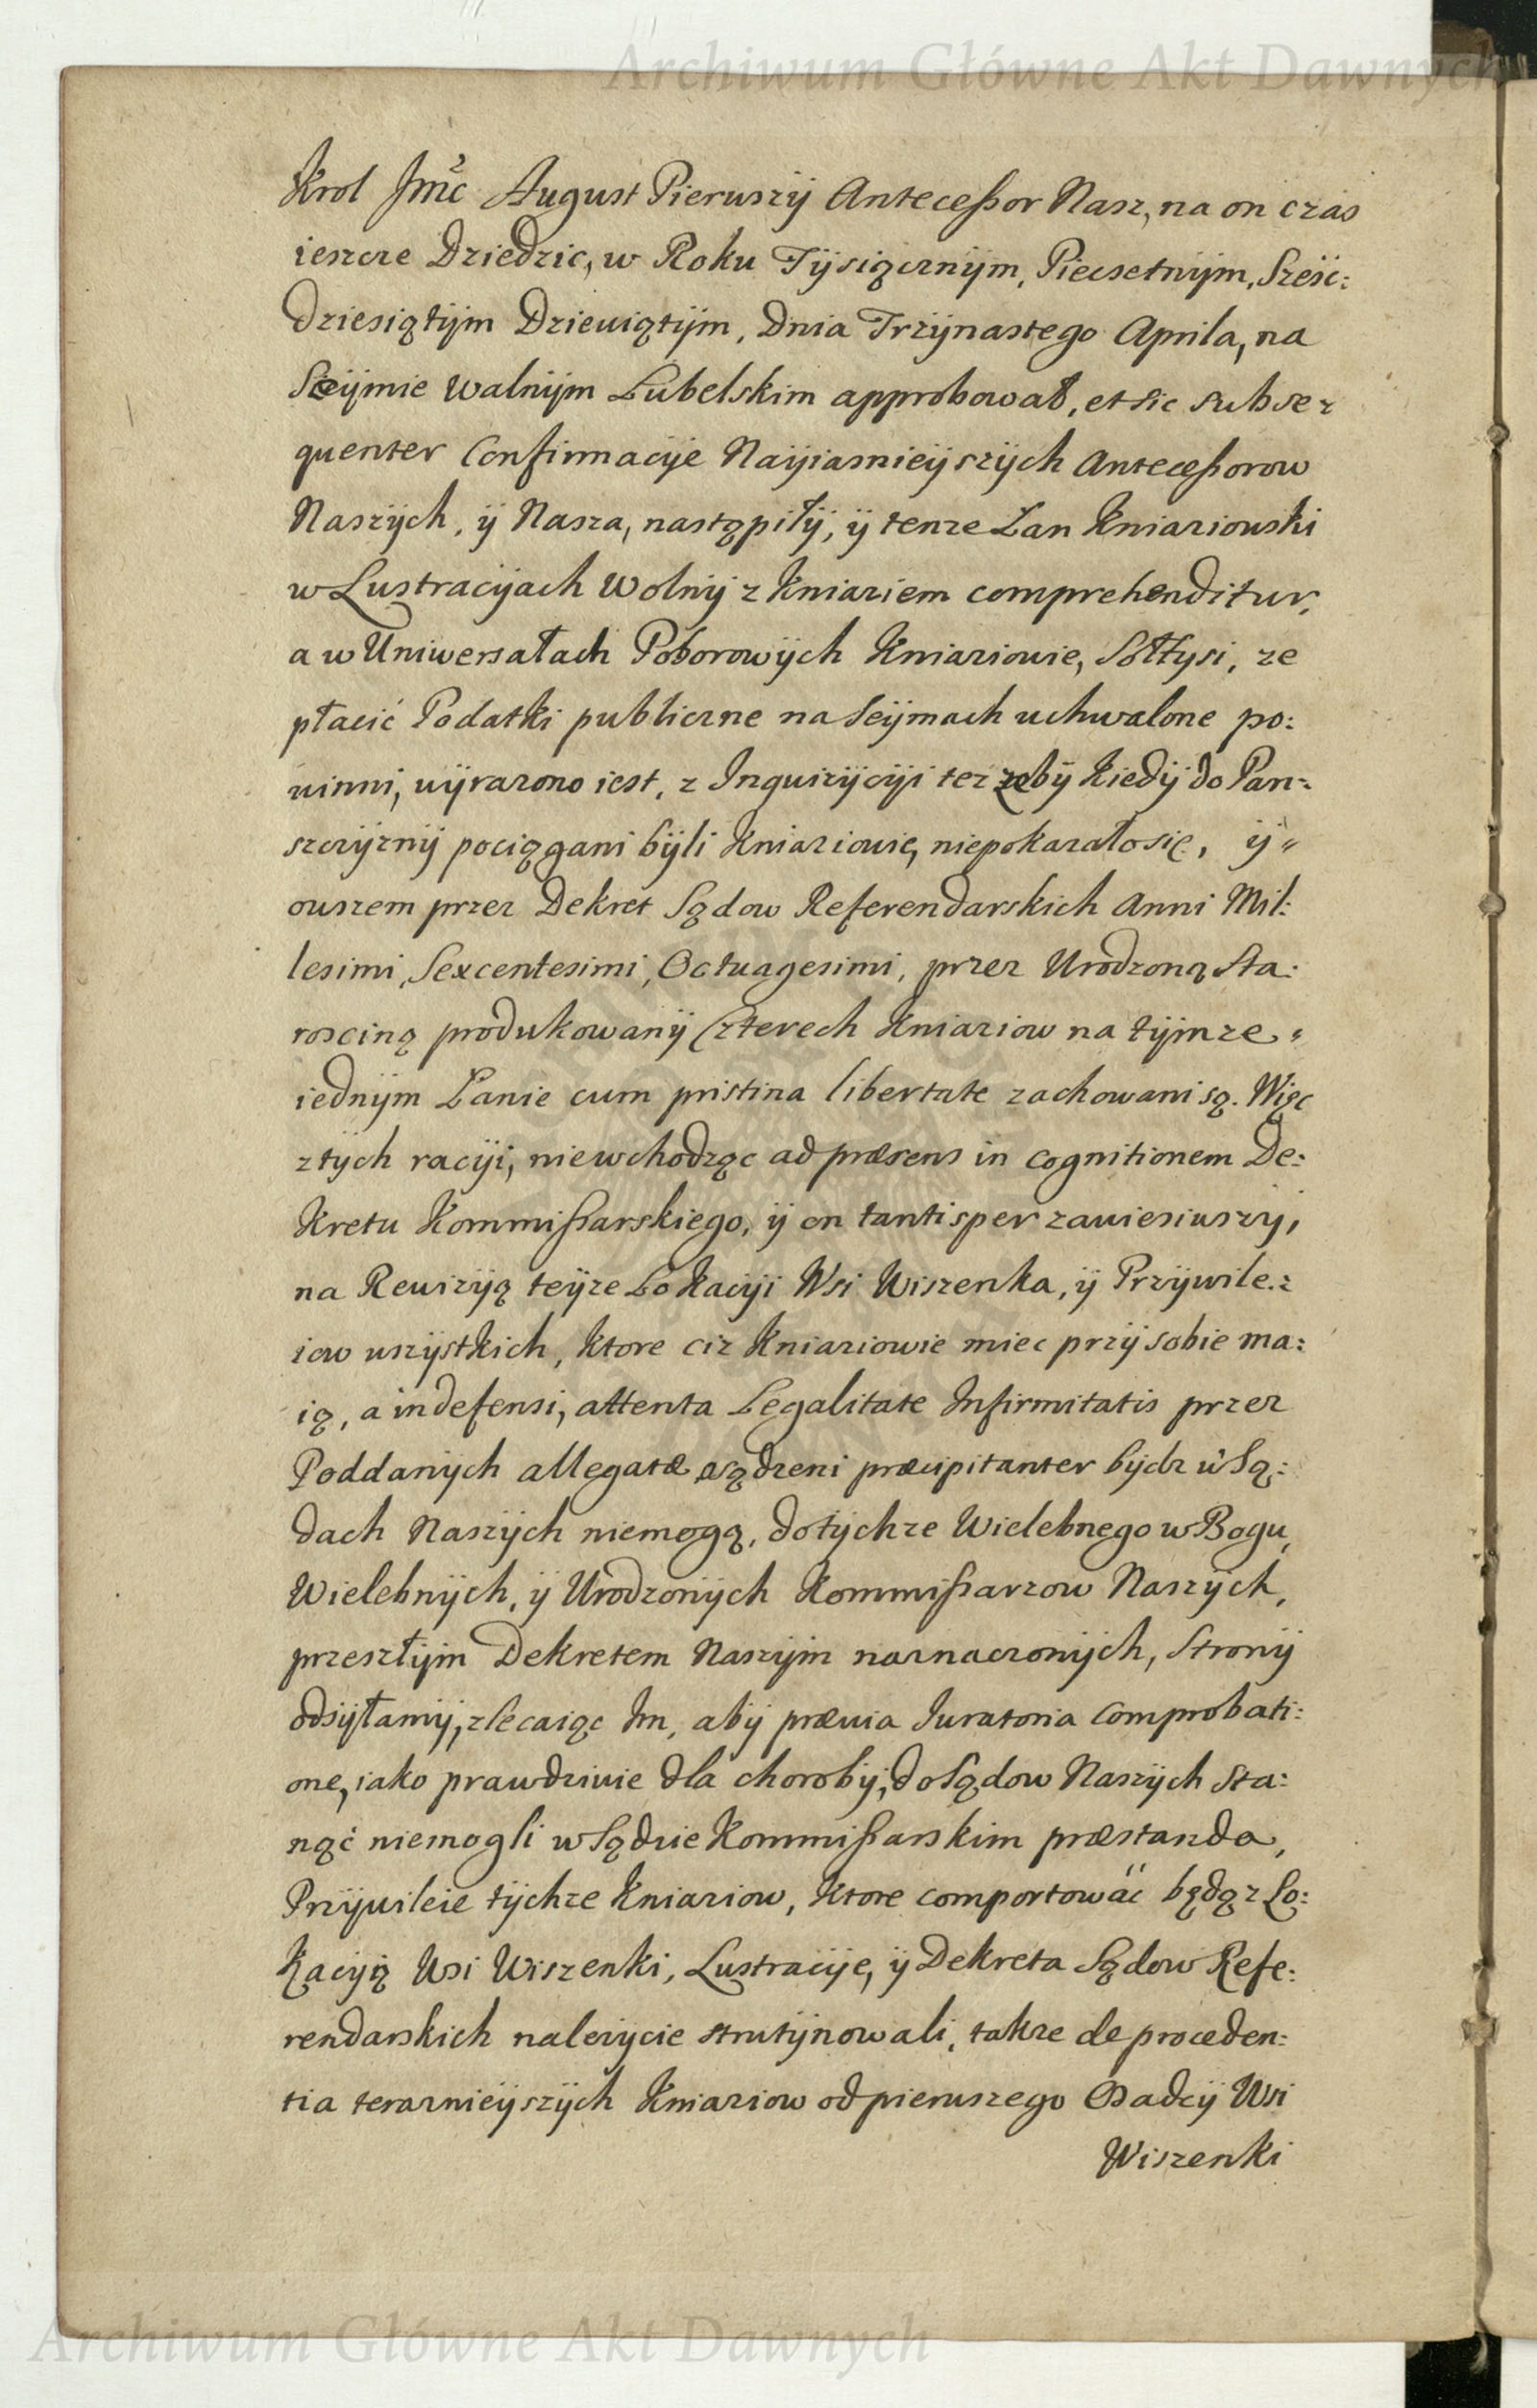 Archiwum Główne Akt Dawnych
Krol Jmc August Pierwszy Antecessor Nasz, na on czas
ieszcze Dziedzic, w Roku Tysiącznym, Piecsetnym, Sześć:
dziesiątym Dziewiątym, Dnia Trzynastego Aprila, na
Seymie Walnym Lubelskim approbował, et sic subse:
quenter Confirmacye Nayiasnieyszych Antecessorow
Naszych, y Nasza, nastąpiły, y tenze Łan Kniaziowski
w Lustracyach Wolny z Kniaziem comprehenditur,
a w Uniwersałach Poborowych Kniaziowie, Sołtysi, ze
płacić Podatki publiczne na Seymach uchwalone po:
winni, wyrazono iest, z Inquizycyi tez zeby kiedy do Pan:
szczyzny pociągani byli Kniaziowie, niepokazałosię, y
owszem przez Dekret Sądow Referendarskich Anni Mil:
lesimi, Sexcentesimi, Octuagesimi, przez Urodzoną Sta:
roscinę produkowany Czterech Kniaziow na tymze
iednym Łanie cum pristina libertate zachowani są. Więc
z tych racyi, niewchodząc ad præsens in cognitionem De:
kretu Kommissarskiego, y on tantisper zawiesiwszy,
na Rewizyą teyze Lokacyi Wsi Wiszenka, y Przywile:
iow wszystkich, ktore ciz Kniaziowie miec przy sobie ma:
ią, a indefensi, attenta Legalitate Infirmitatis przez
Poddanych allegatæ osądzeni præcipitanter bydz w Są:
dach Naszych niemogą, dotychze Wielebnego w Bogu,
Wielebnych, y Urodzonych Kommissarzow Naszych,
przeszłym Dekretem Naszym naznaczonych, Strony
odsyłamy, zlecaiąc Im, aby prævia Iuratoria Comprobati:
one, iako prawdziwie dla choroby, do Sądow Naszych sta:
nąć niemogli w Sądzie Kommissarskim præstanda,
Przywileie tychze Kniaziow, ktore comportować będą z Lo:
kacyią Wsi Wiszenki, Lustracye, y Dekreta Sądow Refe:
rendarskich nalezycie strutynowali, takze de proceden:
tia terazneyszych Kniaziow od pierwszego Osadcy Wsi
Wiszenki
Archiwum Główne Akt Dawnych